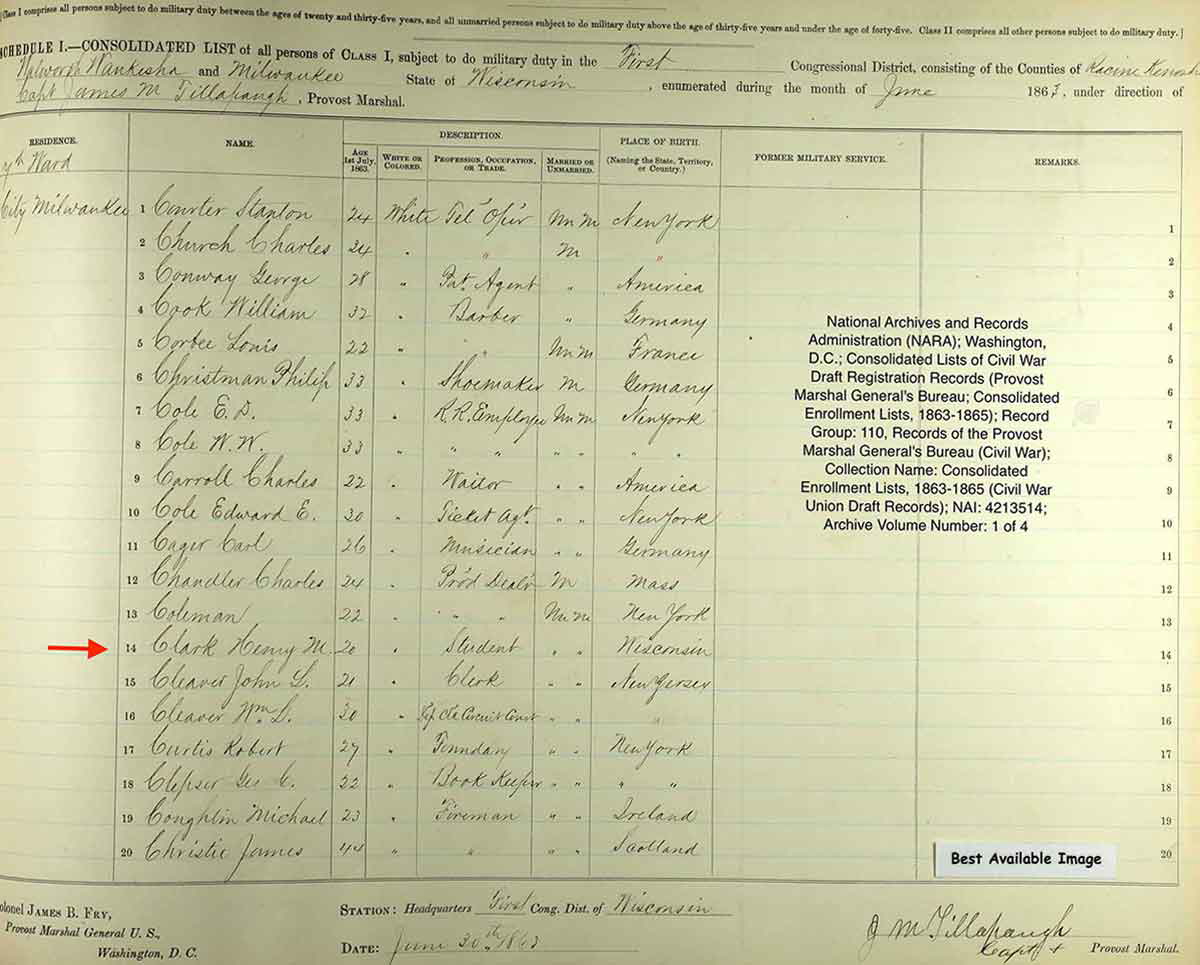 [Class I comprises all persons subject to do military duty between the ages of twenty and thirty-five years, and all unmarried persons subject to do military duty above the age of thirty-five years and under the age of forty-five. Class II comprises all other persons subject to do military duty.]
SCHEDULE I.—CONSOLIDATED LIST of all persons of CLASS I, subject to do military duty in the First Congressional District, consisting of the Counties of Racine Kenosh
Walworth Waukesha and Milwaukee State of Wisconsin, enumerated during the month of June 1863, under direction of
Capt James M Tillapaugh, Provost Marshal.
RESIDENCE. NAME. DESCRIPTION. PLACE OF BIRTH. FORMER MILITARY SERVICE. REMARKS.
AGE 1st July, 1863. WHITE OR COLORED. PROFESSION, OCCUPATION, OR TRADE. MARRIED OR UNMARRIED. (Naming the State, Territory, or Country.)
7th Ward
City Milwaukee 1 Courter Stanton 24 White Tel Op'r Un M New York 1
2 Church Charles 24 " " M " 2
3 Conway George 28 " Pat. Agent " America 3
4 Cook William 32 " Barber " Germany 4
5 Corbee Louis 22 " " Un M France 5
6 Christman Philip 33 " Shoemaker M Germany 6
7 Cole E. D. 33 " R.R. Employee Un M New York 7
8 Cole W. W. 33 " " " " " " " 8
9 Carroll Charles 22 " Waitor " " America 9
10 Cole Edward E. 30 " Ticket Agt. " " New York 10
11 Cager Carl 26 " Musician " " Germany 11
12 Chandler Charles 24 " Prod Deal'r M Mass 12
13 Coleman 22 " " " Un M New York 13
14 Clark Henry M. 20 " Student " " Wisconsin 14
15 Cleaver John L. 21 " Clerk " " New Jersey 15
16 Cleaver Wm L. 30 " Circuit Court " " " 16
17 Curtis Robert 27 " " " New York 17
18 Clepser Geo C. 22 " Book Keeper " " " " 18
19 Coughlin Michael 23 " Fireman " " Ireland 19
20 Christie James 44 " " " " Scotland 20
National Archives and Records
Administration (NARA); Washington,
D.C.; Consolidated Lists of Civil War
Draft Registration Records (Provost
Marshal General's Bureau; Consolidated
Enrollment Lists, 1863-1865); Record
Group: 110, Records of the Provost
Marshal General's Bureau (Civil War);
Collection Name: Consolidated
Enrollment Lists, 1863-1865 (Civil War
Union Draft Records); NAI: 4213514;
Archive Volume Number: 1 of 4
Best Available Image
olonel JAMES B. FRY,
Provost Marshal General U. S.,
Washington, D. C.
STATION: Headquarters First Cong. Dist. of Wisconsin
DATE: June 30th 1863
J M Tillapaugh
Capt & Provost Marshal.